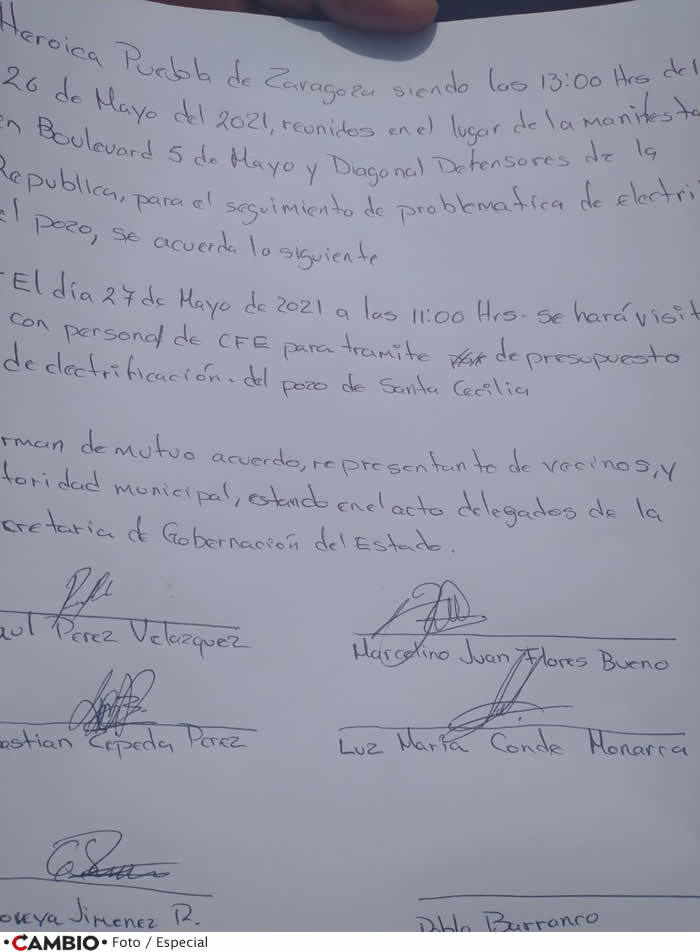 Heroica Puebla de Zaragoza siendo las 13:00 Hrs del
26 de Mayo del 2021, reunidos en el lugar de la manifesta
en Boulevard 5 de Mayo y Diagonal Defensores de la
Republica, para el seguimiento de problematica de electri
el pozo, se acuerda lo siguiente
- El día 27 de Mayo de 2021 a las 11:00 Hrs. se hará visit
con personal de CFE para tramite de presupuesto
de electrificación. del pozo de Santa Cecilia
rman de mutuo acuerdo, representante de vecinos, y
toridad municipal, estando en el acto delegados de la
cretaria de Gobernación del Estado.
aul Perez Velazquez
Marcelino Juan Flores Bueno
astian Cepeda Perez
Luz María Conde Monarca
Jimenez R.
Pablo Barranco
•CAMBIO• Foto / Especial